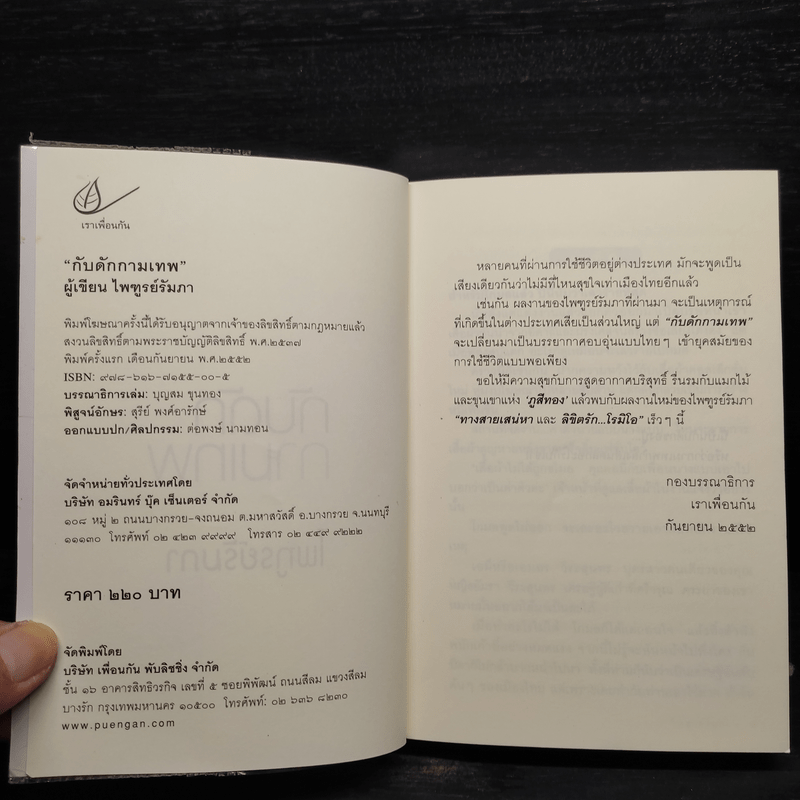 เราเพื่อนกัน
“กับดักกามเทพ”
ผู้เขียน ไพฑูรย์รัมภา
พิมพ์โฆษณาครั้งนี้ได้รับอนุญาตจากเจ้าของลิขสิทธิ์ตามกฎหมายแล้ว
สงวนลิขสิทธิ์ตามพระราชบัญญัติลิขสิทธิ์ พ.ศ.๒๕๓๗
พิมพ์ครั้งแรก เดือนกันยายน พ.ศ.๒๕๕๒
ISBN: ๙๗๘-๖๑๖-๗๑๕๕-๐๐-๕
บรรณาธิการเล่ม: บุญสม ขุนทอง
พิสูจน์อักษร: สุรีย์ พงศ์อารักษ์
ออกแบบปก/ศิลปกรรม: ต่อพงษ์ นามทอน
จัดจำหน่ายทั่วประเทศโดย
บริษัท อมรินทร์ บุ๊ค เซ็นเตอร์ จำกัด
๑๐๘ หมู่ ๒ ถนนบางกรวย-จงถนอม ต.มหาสวัสดิ์ อ.บางกรวย จ.นนทบุรี
๑๑๑๓๐ โทรศัพท์ ๐๒ ๔๒๓ ๙๙๙๙ โทรสาร ๐๒ ๔๔๙ ๙๒๒๒
ราคา ๒๒๐ บาท
จัดพิมพ์โดย
บริษัท เพื่อนกัน พับลิชชิ่ง จำกัด
ชั้น ๑๖ อาคารสิทธิวรกิจ เลขที่ ๕ ซอยพิพัฒน์ ถนนสีลม แขวงสีลม
บางรัก กรุงเทพมหานคร ๑๐๕๐๐ โทรศัพท์: ๐๒ ๖๓๖ ๘๒๓๐
www.puengan.com
หลายคนที่ผ่านการใช้ชีวิตอยู่ต่างประเทศ มักจะพูดเป็น
เสียงเดียวกันว่าไม่มีที่ไหนสุขใจเท่าเมืองไทยอีกแล้ว
เช่นกัน ผลงานของไพฑูรย์รัมภาที่ผ่านมา จะเป็นเหตุการณ์
ที่เกิดขึ้นในต่างประเทศเสียเป็นส่วนใหญ่ แต่ “กับดักกามเทพ”
จะเปลี่ยนมาเป็นบรรยากาศอบอุ่นแบบไทยๆ เข้ายุคสมัยของ
การใช้ชีวิตแบบพอเพียง
ขอให้มีความสุขกับการสูดอากาศบริสุทธิ์ รื่นรมกับแมกไม้
และขุนเขาแห่ง ‘ภูสีทอง’ แล้วพบกับผลงานใหม่ของไพฑูรย์รัมภา
“ทางสายเสน่หา และ ลิขิตรัก...โรมิโอ” เร็วๆ นี้
กองบรรณาธิการ
เราเพื่อนกัน
กันยายน ๒๕๕๒